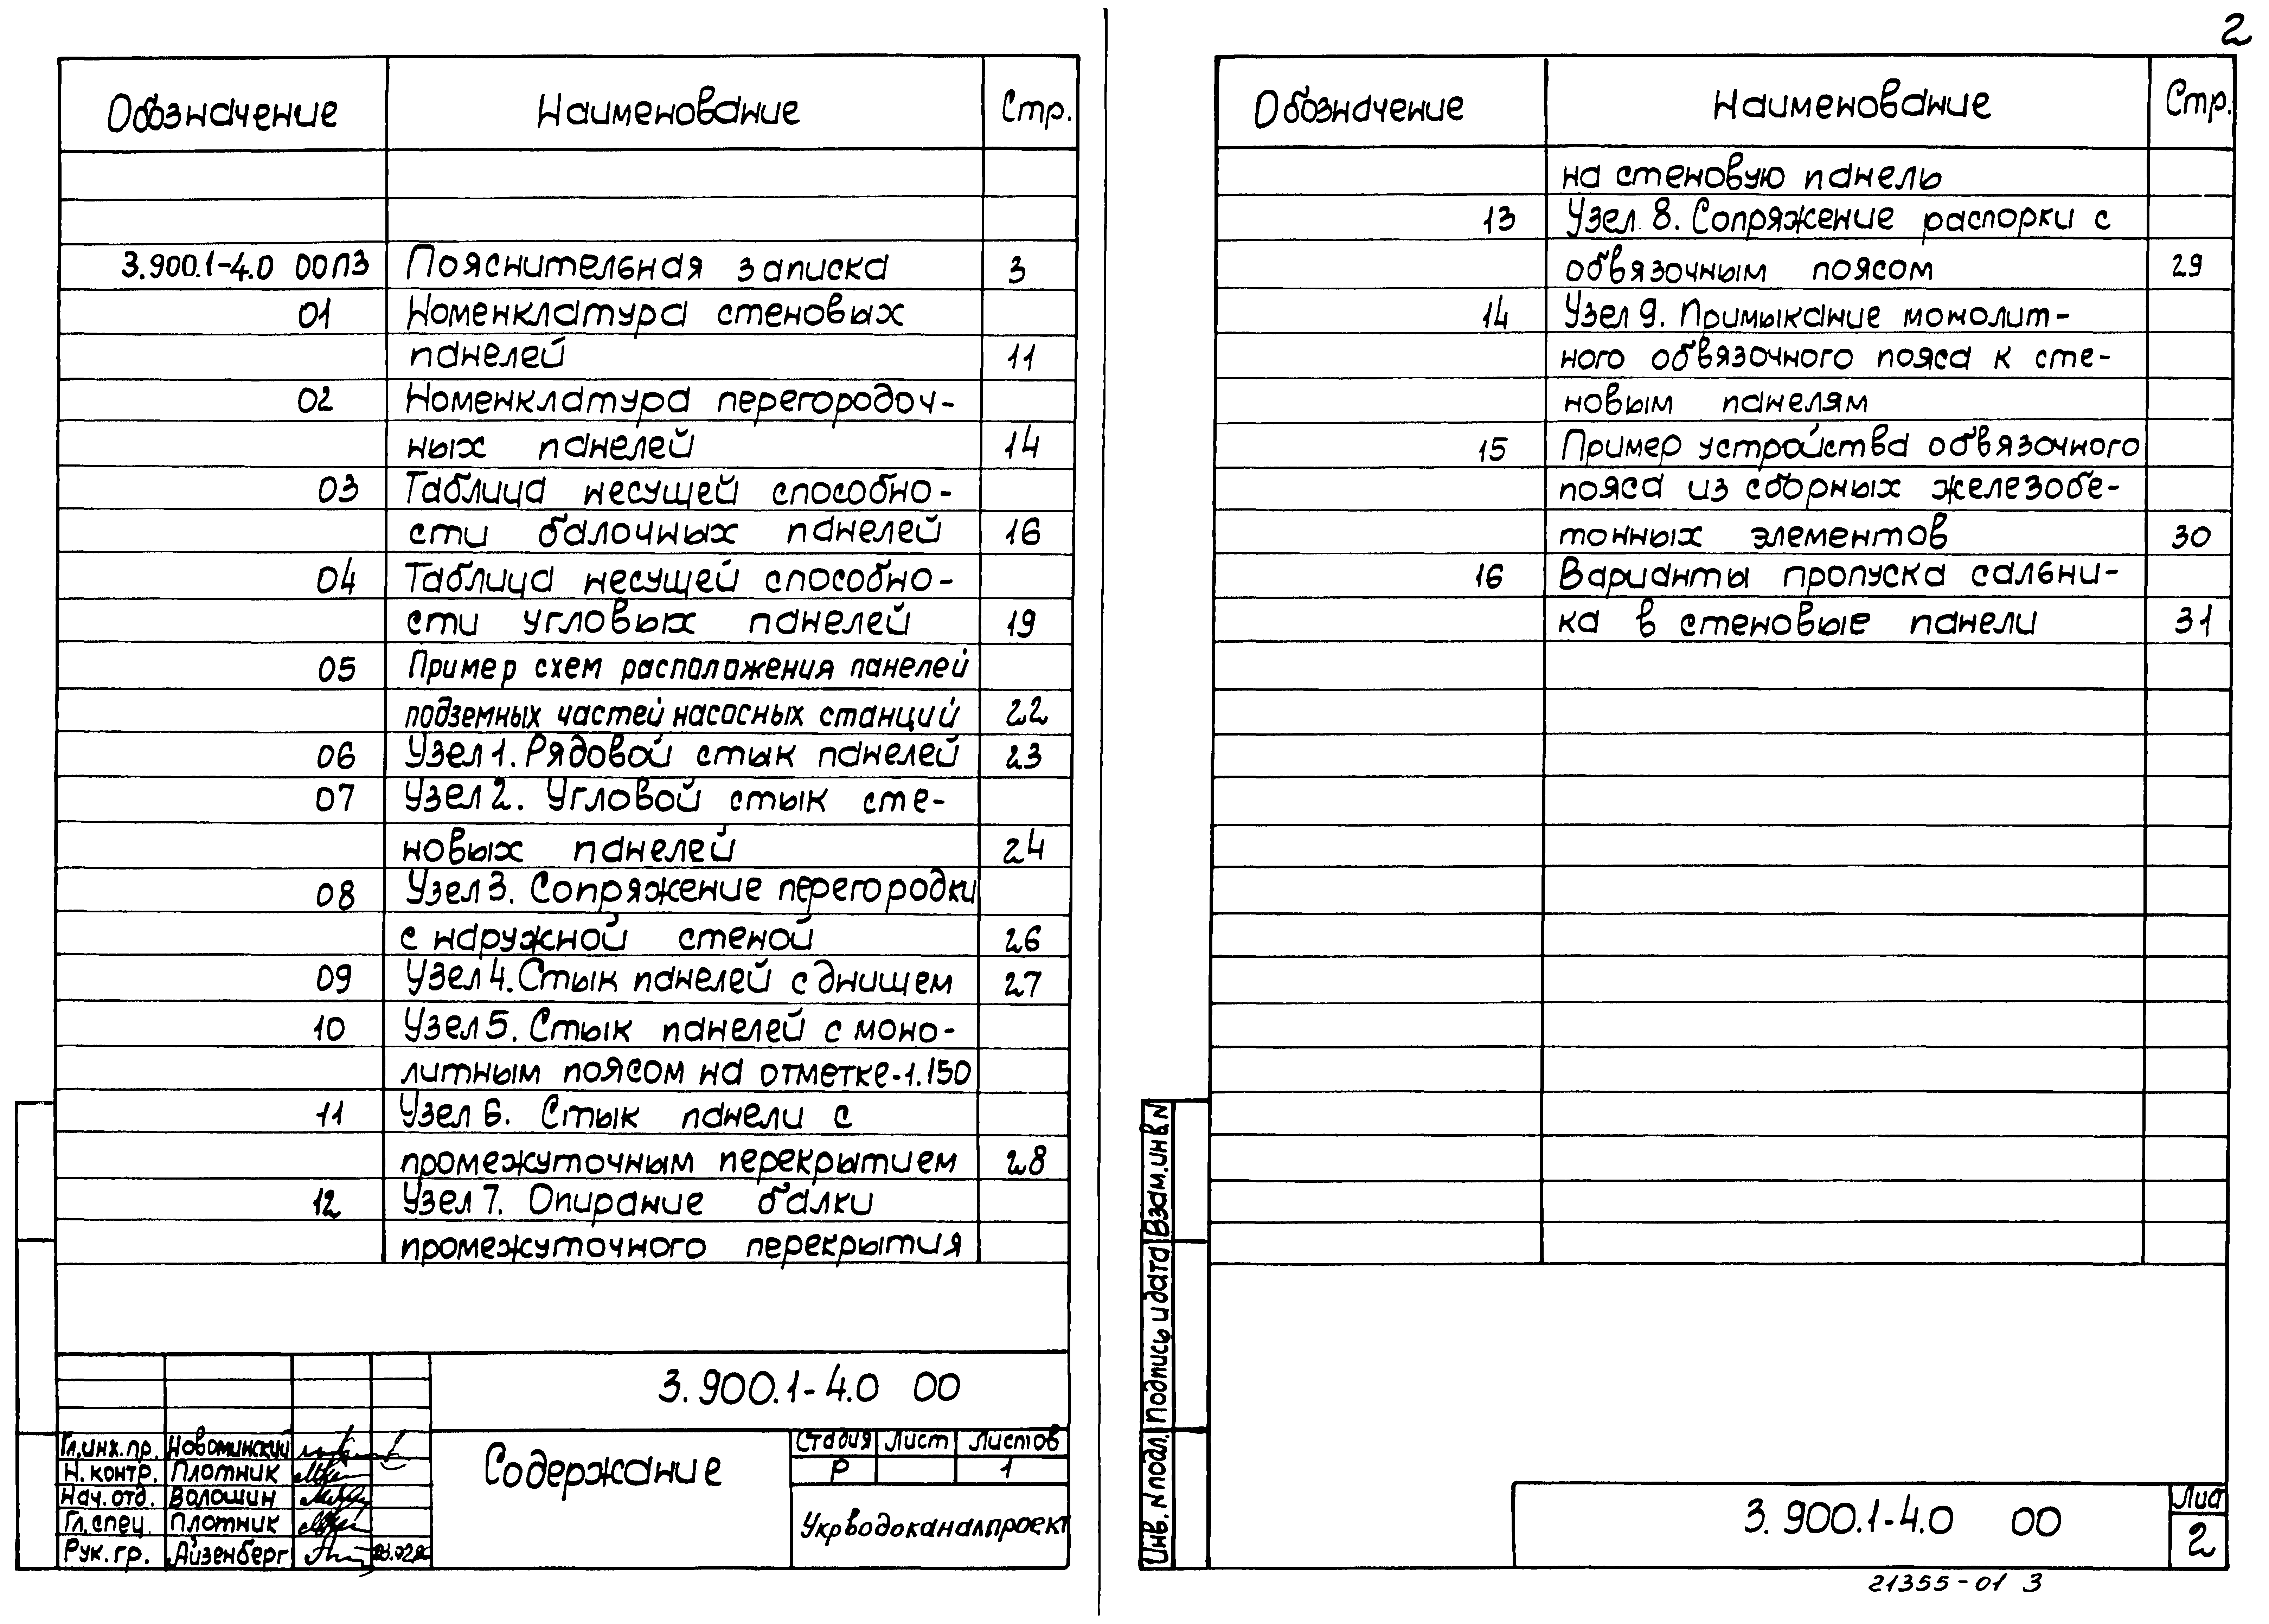 2
Обозначение Наименование Стр.
3.900.1-4.0 00ПЗ Пояснительная записка 3
01 Номенклатура стеновых
панелей 11
02 Номенклатура перегородоч-
ных панелей 14
03 Таблица несущей способно-
сти балочных панелей 16
04 Таблица несущей способно-
сти угловых панелей 19
05 Пример схем расположения панелей
подземных частей насосных станций 22
06 Узел 1. Рядовой стык панелей 23
07 Узел 2. Угловой стык сте-
новых панелей 24
08 Узел 3. Сопряжение перегородки
с наружной стеной 26
09 Узел 4. Стык панелей с днищем 27
10 Узел 5. Стык панелей с моно-
литным поясом на отметке-1.150
11 Узел 6. Стык панели с
промежуточным перекрытием 28
12 Узел 7. Опирание балки
промежуточного перекрытия
3.900.1-4.0 00
Гл.инж.пр. Новоминский
Н.контр. Плотник
Нач.отд. Волошин
Гл.спец. Плотник
Рук.гр. Айзенберг
Содержание
Стадия Лист Листов
Р 1
Укрводоканалпроект
Обозначение Наименование Стр.
на стеновую панель
13 Узел 8. Сопряжение распорки с
обвязочным поясом 29
14 Узел 9. Примыкание монолит-
ного обвязочного пояса к сте-
новым панелям
15 Пример устройства обвязочного
пояса из сборных железобе-
тонных элементов 30
16 Варианты пропуска сальни-
ка в стеновые панели 31
Инв. N подл. Подпись и дата Взам.инв.N
3.900.1-4.0 00
Лист
2
21355-01 3